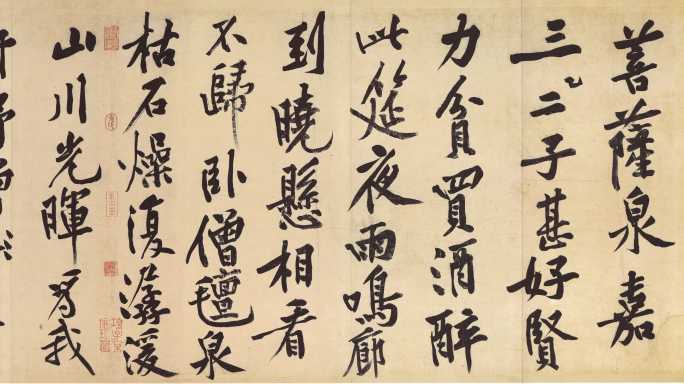 菩薩泉嘉
三二子甚好賢
力貧買酒醉
此筵夜雨鳴廊
到曉懸相看
不歸臥僧氈泉
枯石燥復潺湲
山川光暉為我